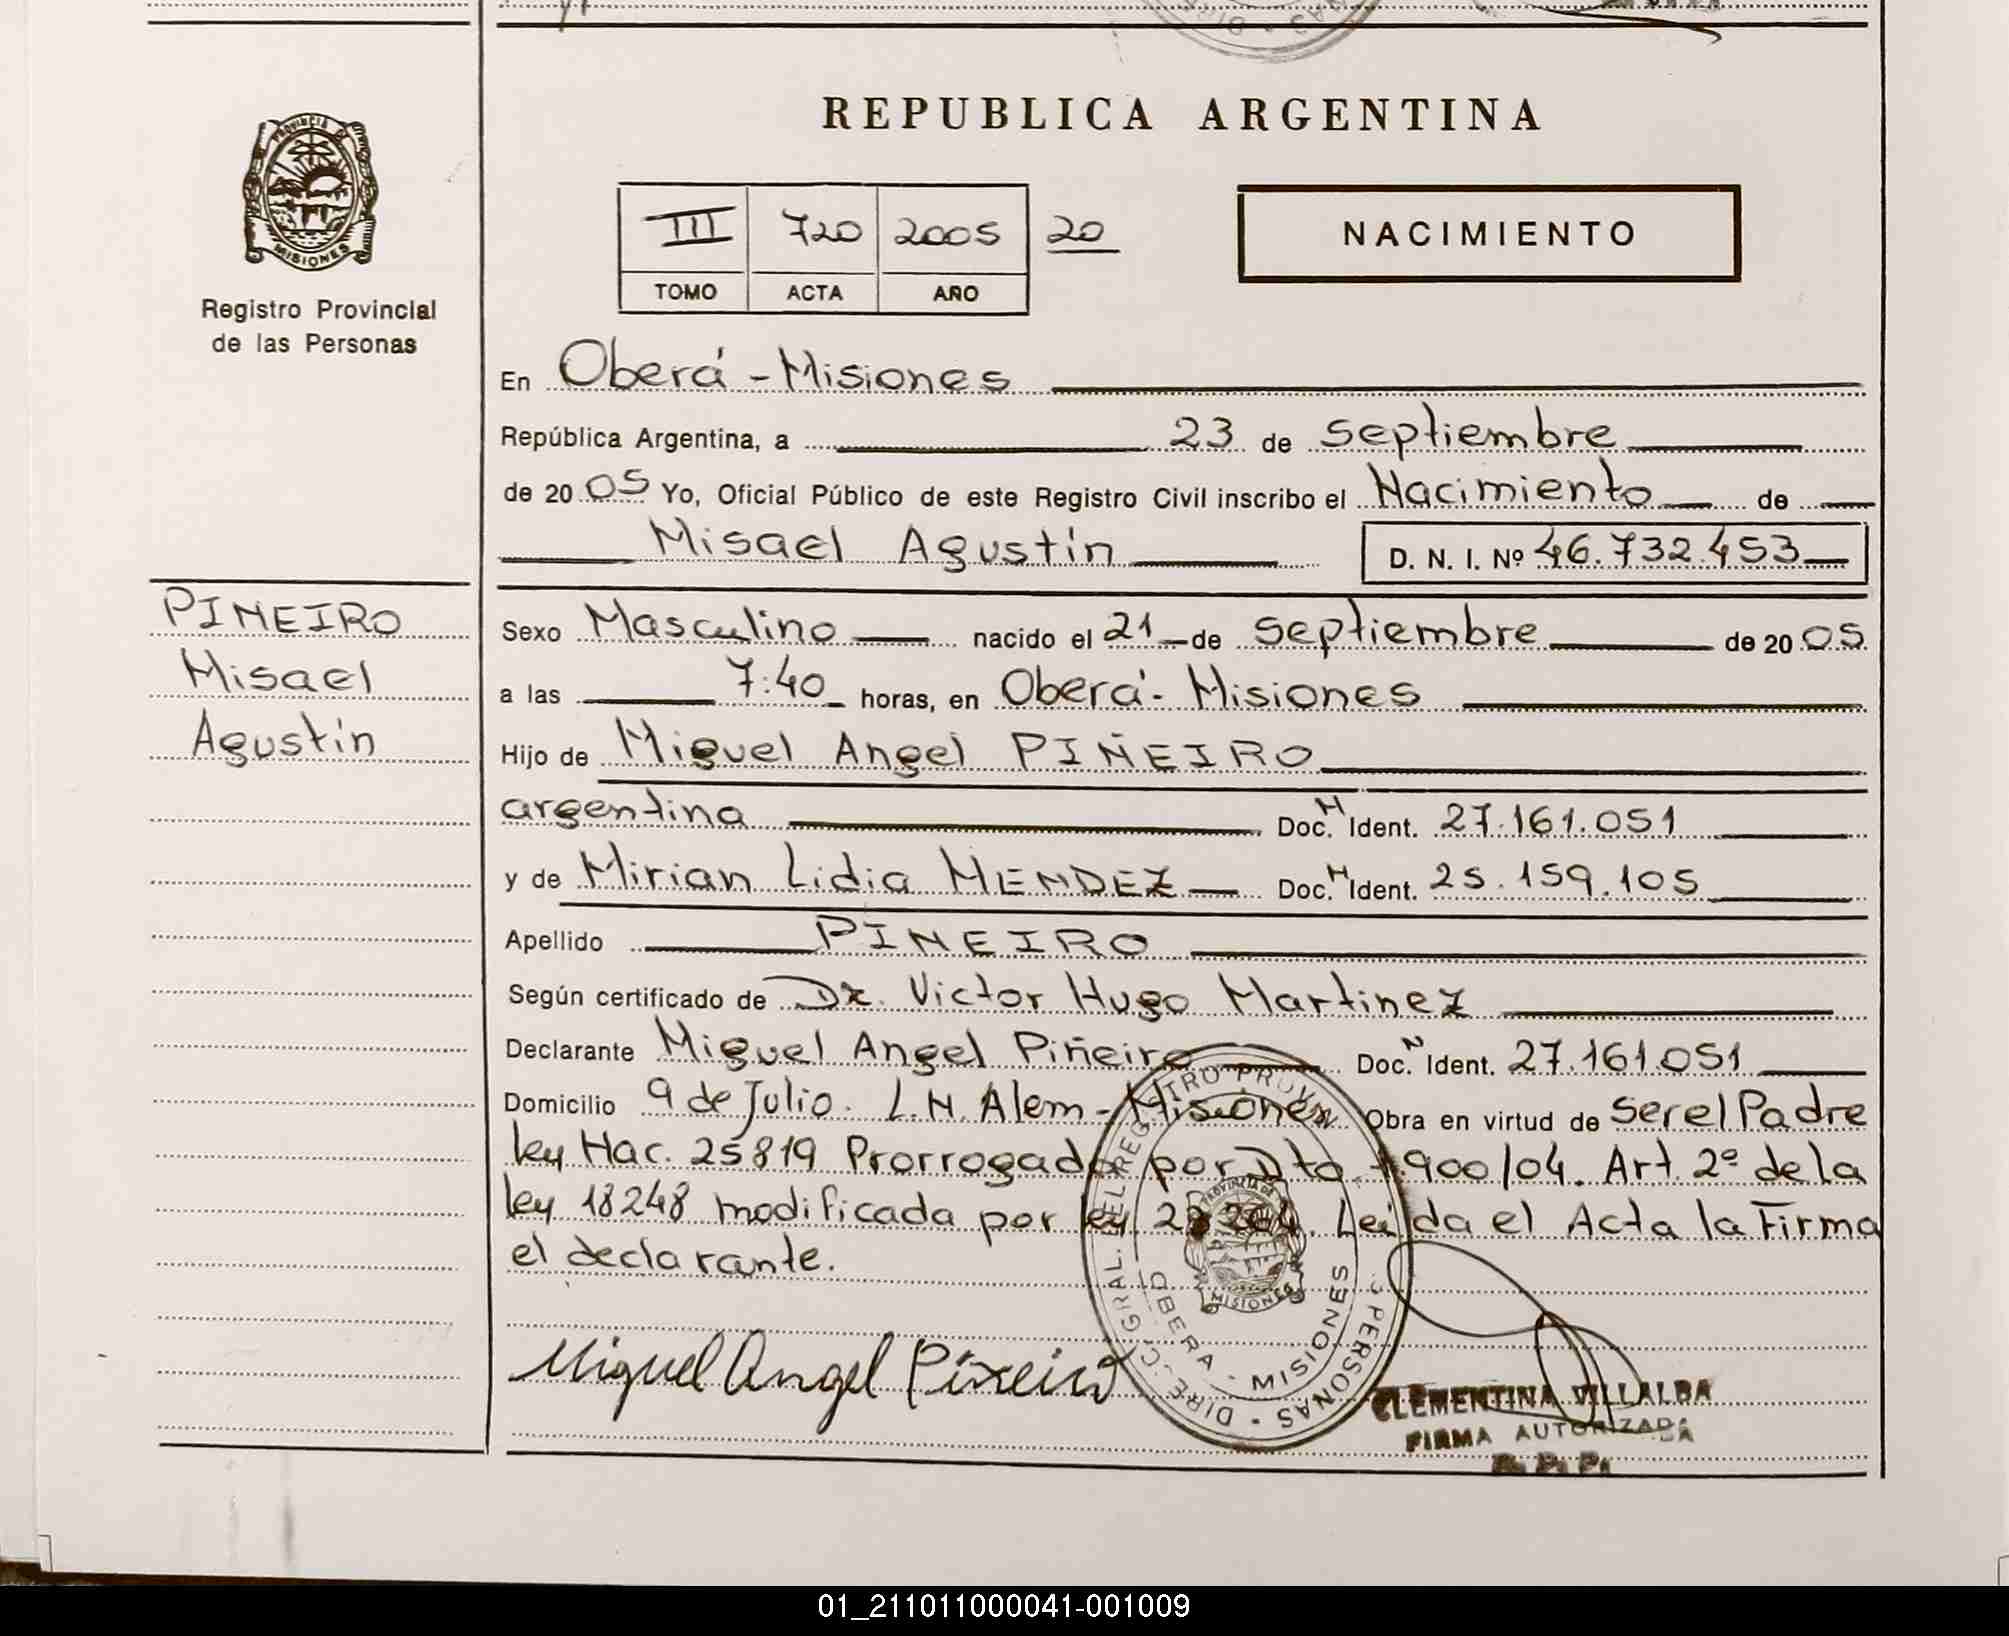 REPUBLICA ARGENTINA
PROVINCIA DE
MISIONES
Registro Provincial
de las Personas
III 720 2005 20
TOMO ACTA AÑO
NACIMIENTO
En Oberá - Misiones
República Argentina, a 23 de septiembre
de 20 05 Yo, Oficial Público de este Registro Civil inscribo el Nacimiento de
Misael Agustín D. N. I. Nº 46.732.453
PINEIRO
Misael
Agustín
Sexo Masculino nacido el 21 de septiembre de 20 05
a las 7:40 horas, en Oberá - Misiones
Hijo de Miguel Angel PIÑEIRO
argentina Doc. N Ident. 27.161.051
y de Mirian Lidia MENDEZ Doc. N Ident. 25.159.105
Apellido PINEIRO
Según certificado de Dr. Victor Hugo Martinez
Declarante Miguel Angel Piñeiro Doc. N Ident. 27.161.051
Domicilio 9 de Julio. L.N. Alem - Misiones Obra en virtud de ser el Padre
ley Nac. 25819 Prorrogada por Dto 1.900/04. Art. 2º de la
ley 18248 modificada por ley Leida el Acta la Firma
el declarante.
Miguel Angel Piñeiro
DIREC. GRAL. DEL REGISTRO PROVIN PERSONAS
OBERA - MISIONES
PROVINCIA DE
MISIONES
CLEMENTINA VILLALBA
FIRMA AUTORIZADA
R. P. P.
01_211011000041-001009